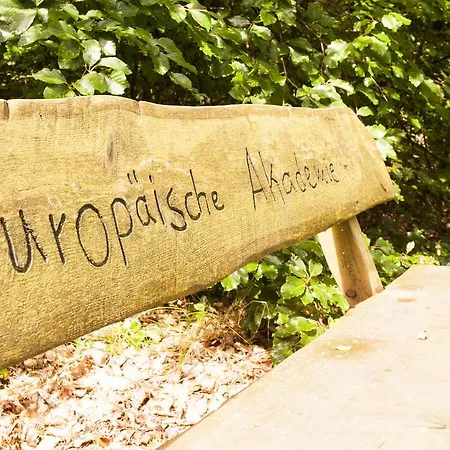 uropäische Akademie